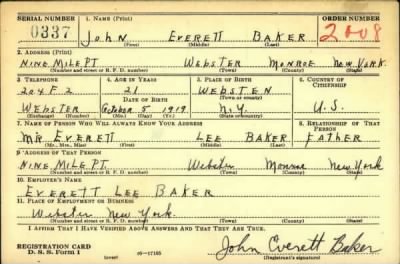 SERIAL NUMBER 1. NAME (Print) ORDER NUMBER
0337 JOHN EVERETT BAKER 2008
(First) (Middle) (Last)
2. ADDRESS (Print)
NINE MILE PT. WEBSTER MONROE NEW YORK.
(Number and street or R. F. D. number) (Town) (County) (State)
3. TELEPHONE 4. AGE IN YEARS 5. PLACE OF BIRTH 6. COUNTRY OF CITIZENSHIP
204 F 2 21 WEBSTEN
DATE OF BIRTH (Town or county)
WEBSTER October 5 1919 N.Y. U.S.
(Exchange) (Mo.) (Day) (Yr.) (State or country)
7. NAME OF PERSON WHO WILL ALWAYS KNOW YOUR ADDRESS 8. RELATIONSHIP OF THAT PERSON
MR EVERETT LEE BAKER FATHER
(Mr., Mrs., Miss) (First) (Middle) (Last)
9. ADDRESS OF THAT PERSON
NINE MILE PT. Webster Monroe New York
(Number and street or R. F. D. number) (Town) (County) (State)
10. EMPLOYER'S NAME
EVERETT LEE BAKER
11. PLACE OF EMPLOYMENT OR BUSINESS
Webster New York.
(Number and street or R. F. D. number) (Town) (County) (State)
I AFFIRM THAT I HAVE VERIFIED ABOVE ANSWERS AND THAT THEY ARE TRUE.
REGISTRATION CARD
D. S. S. Form 1 (over) 16-17105 John Everett Baker
(Registrant's signature)